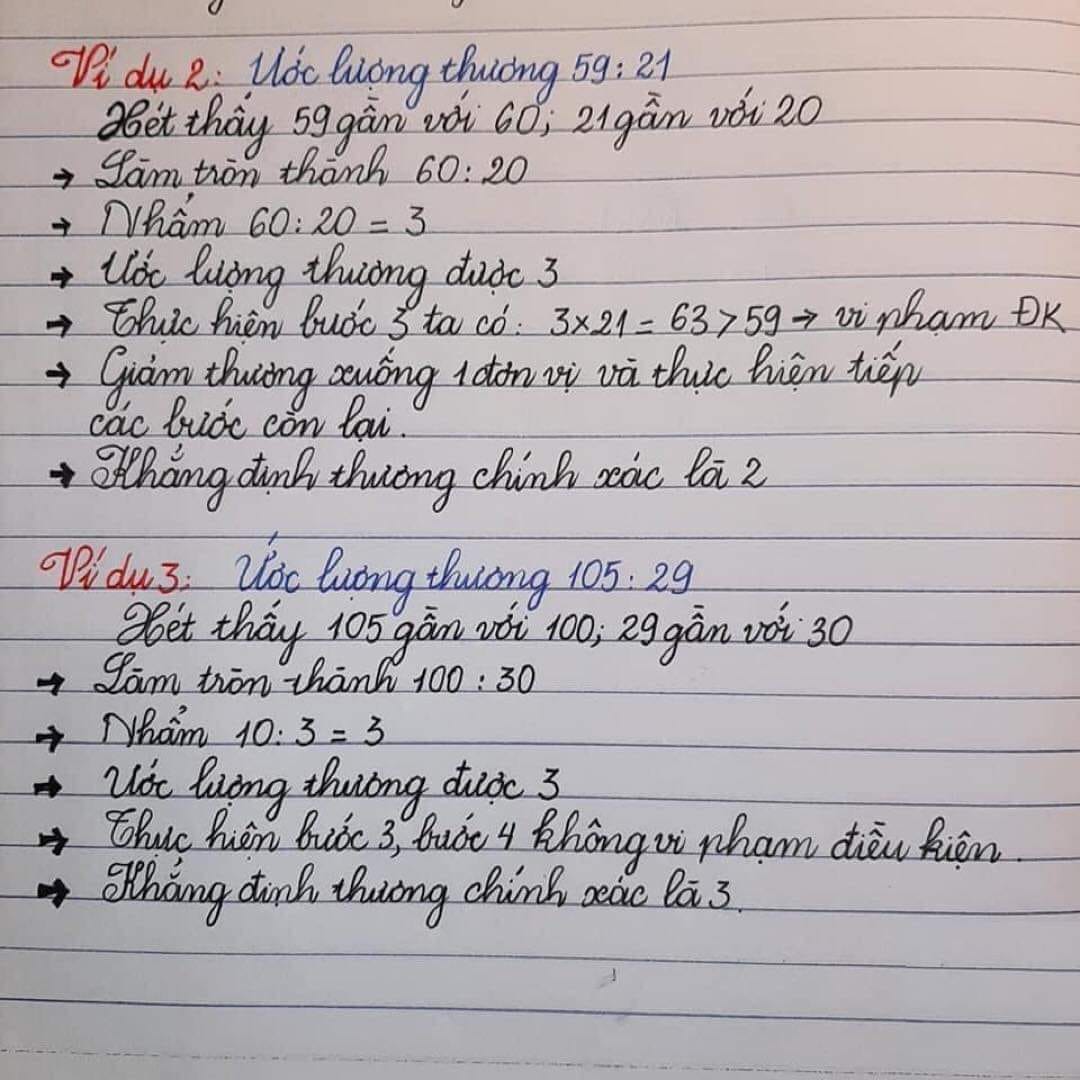 Ví dụ 2: Ước lượng thương 59 : 21
Xét thấy 59 gần với 60; 21 gần với 20
→ Làm tròn thành 60 : 20
→ Nhẩm 60 : 20 = 3
→ Ước lượng thương được 3
→ Thực hiện bước 3 ta có: 3 x 21 = 63 > 59 → vi phạm ĐK
→ Giảm thương xuống 1 đơn vị và thực hiện tiếp
các bước còn lại.
→ Khẳng định thương chính xác là 2
Ví dụ 3: Ước lượng thương 105 : 29
Xét thấy 105 gần với 100; 29 gần với 30
→ Làm tròn thành 100 : 30
→ Nhẩm 10 : 3 = 3
→ Ước lượng thương được 3
→ Thực hiện bước 3, bước 4 không vi phạm điều kiện.
→ Khẳng định thương chính xác là 3.